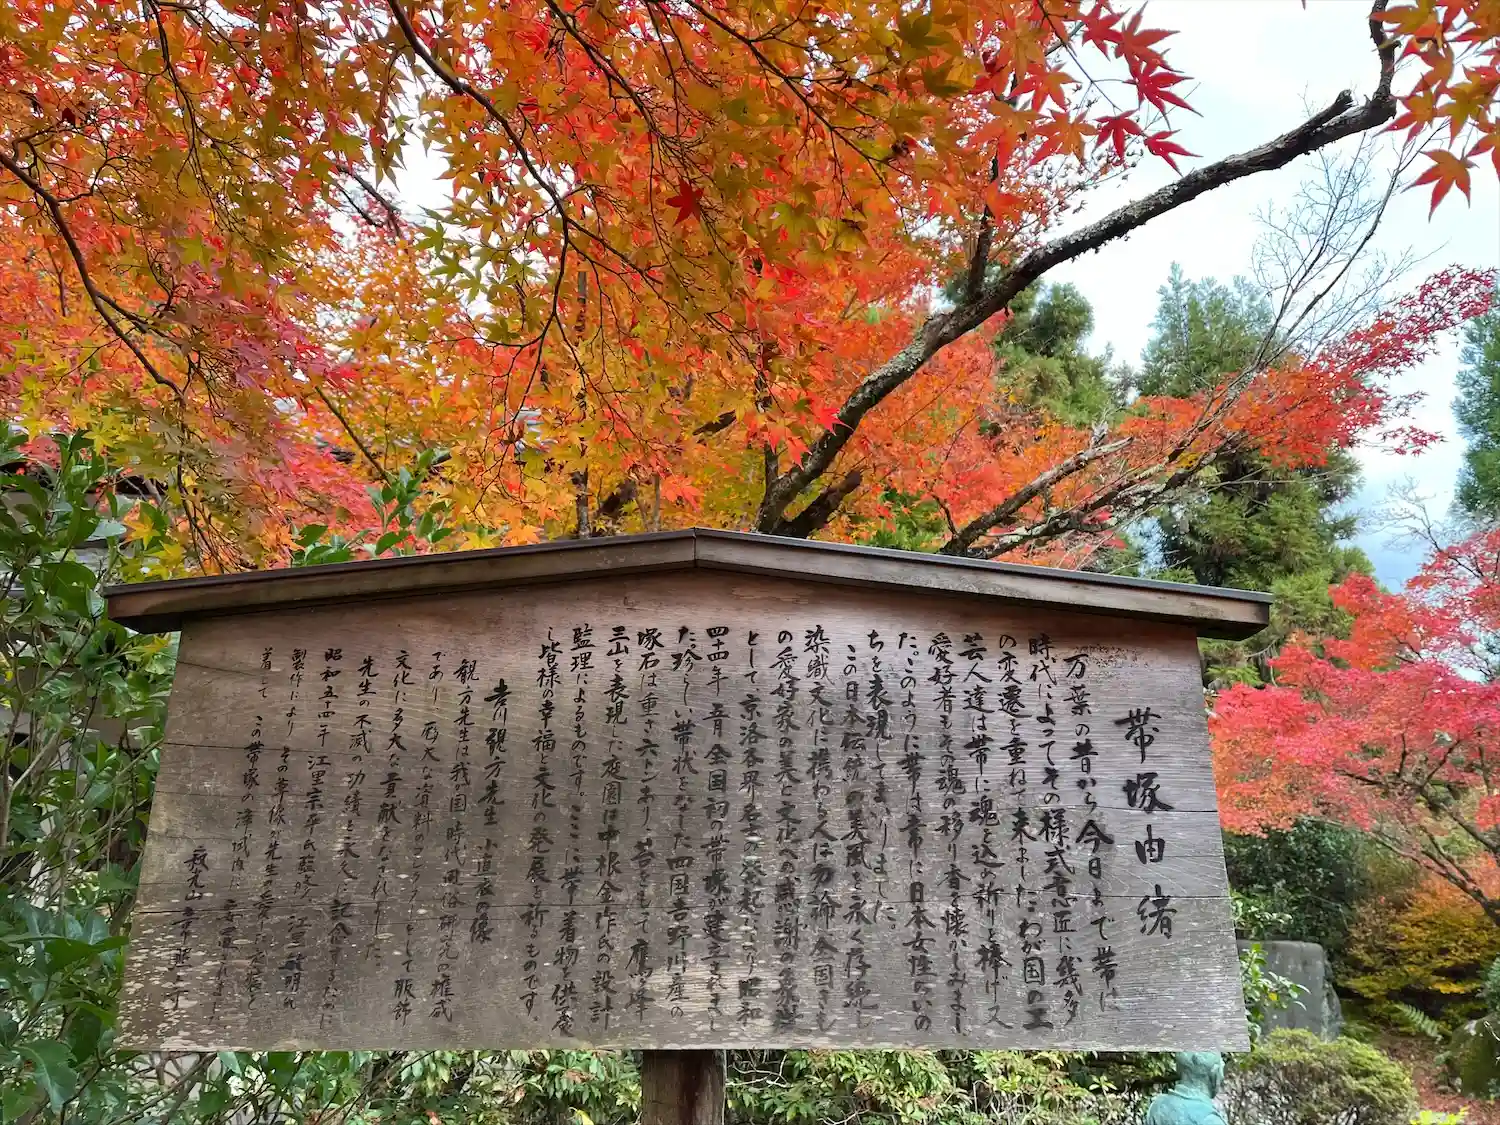 帯塚由緒
万葉の昔から今日まで帯は
時代によってその様式意匠に幾多
の変遷を重ねて来ました わが国の工
芸人達は帯に魂を込め祈りを捧げ又
愛好者もその魂の移り香を懐かしみまし
た、このように帯は常に日本女性のいの
ちを表現してまいりました。
この日本伝統の美風を永く存続し
染織文化に携わる人は勿論全国きも
の愛好家の美と文化への感謝の象徴
として、京洛各界名士の発起により昭和
四十四年五月全国初の帯塚が建立されまし
た、珍しい帯状をなした四国吉野川産の
塚石は重さ六トンあり、苔をもって鷹峰
三山を表現した庭園は中根金作氏の設計
監理によるものです。ここに帯、着物を供養
し皆様の幸福と文化の発展を祈るものです。
吉川観方先生 小直衣の像
観方先生は我が国時代風俗研究の権威
であり 厖大な資料の をもして服飾
文化に多大な貢献をなされました
先生の不滅の功績を永久に記念するために
昭和五十四年 江里宗平氏監修 江里敏明氏
製作により その尊像が先生の
着して この帯塚の浄域内に